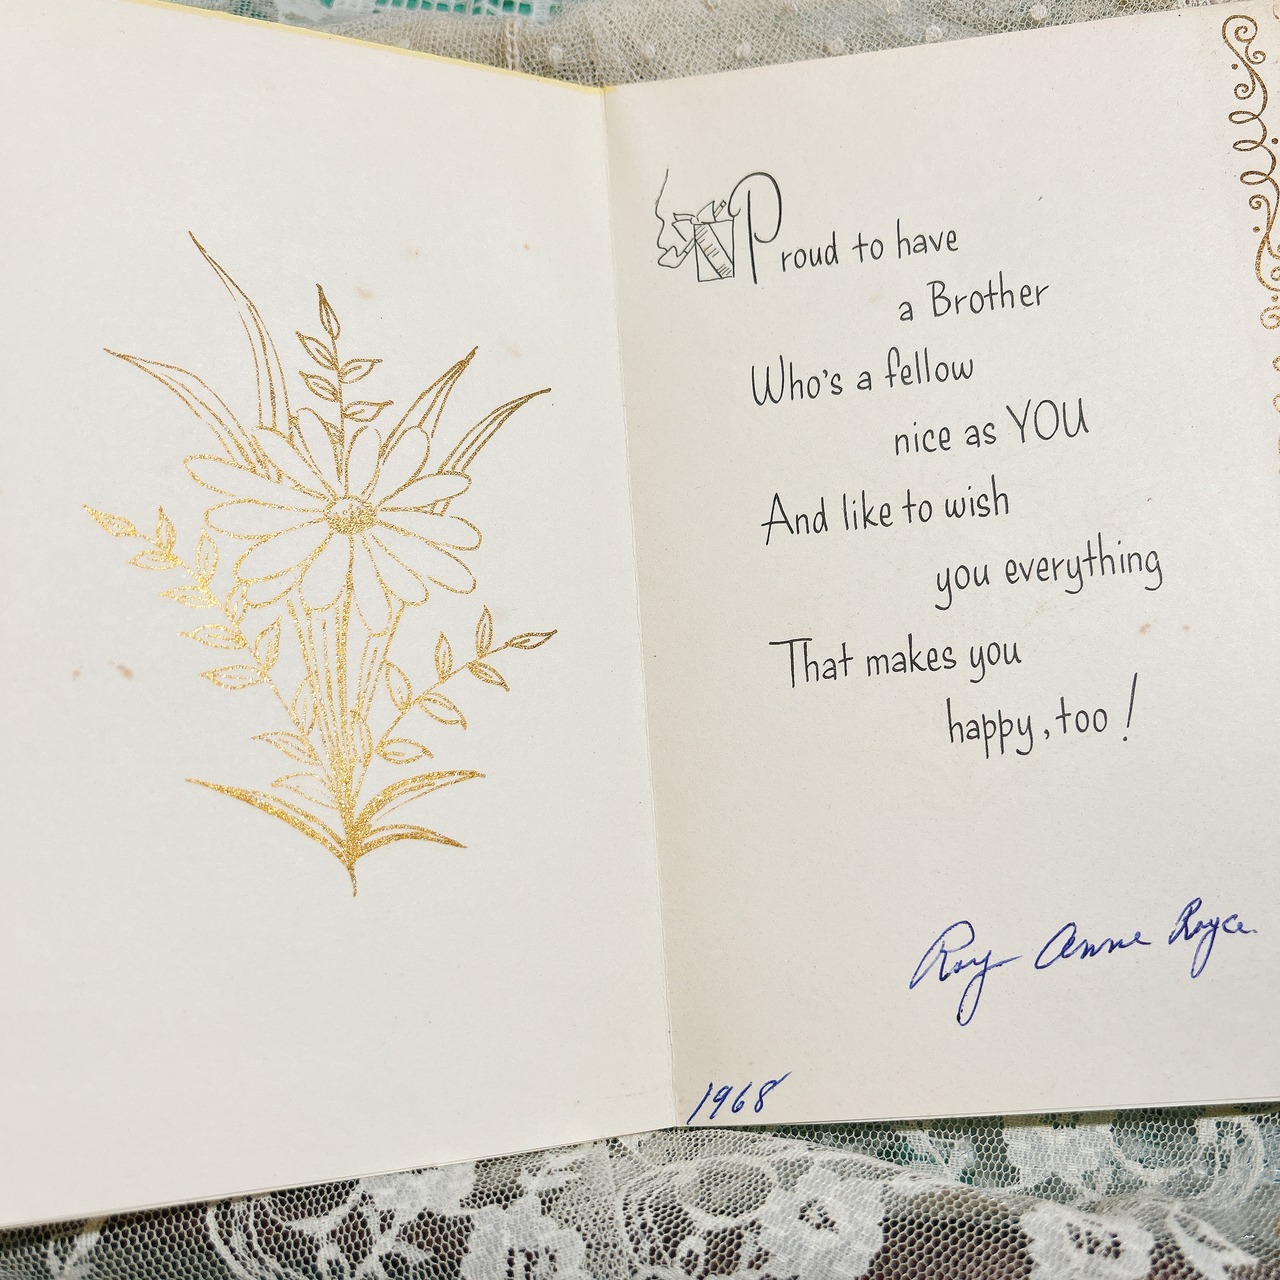 Proud to have
a Brother
Who's a fellow
nice as YOU
And like to wish
you everything
That makes you
happy, too!
Roy Anne Royce
1968